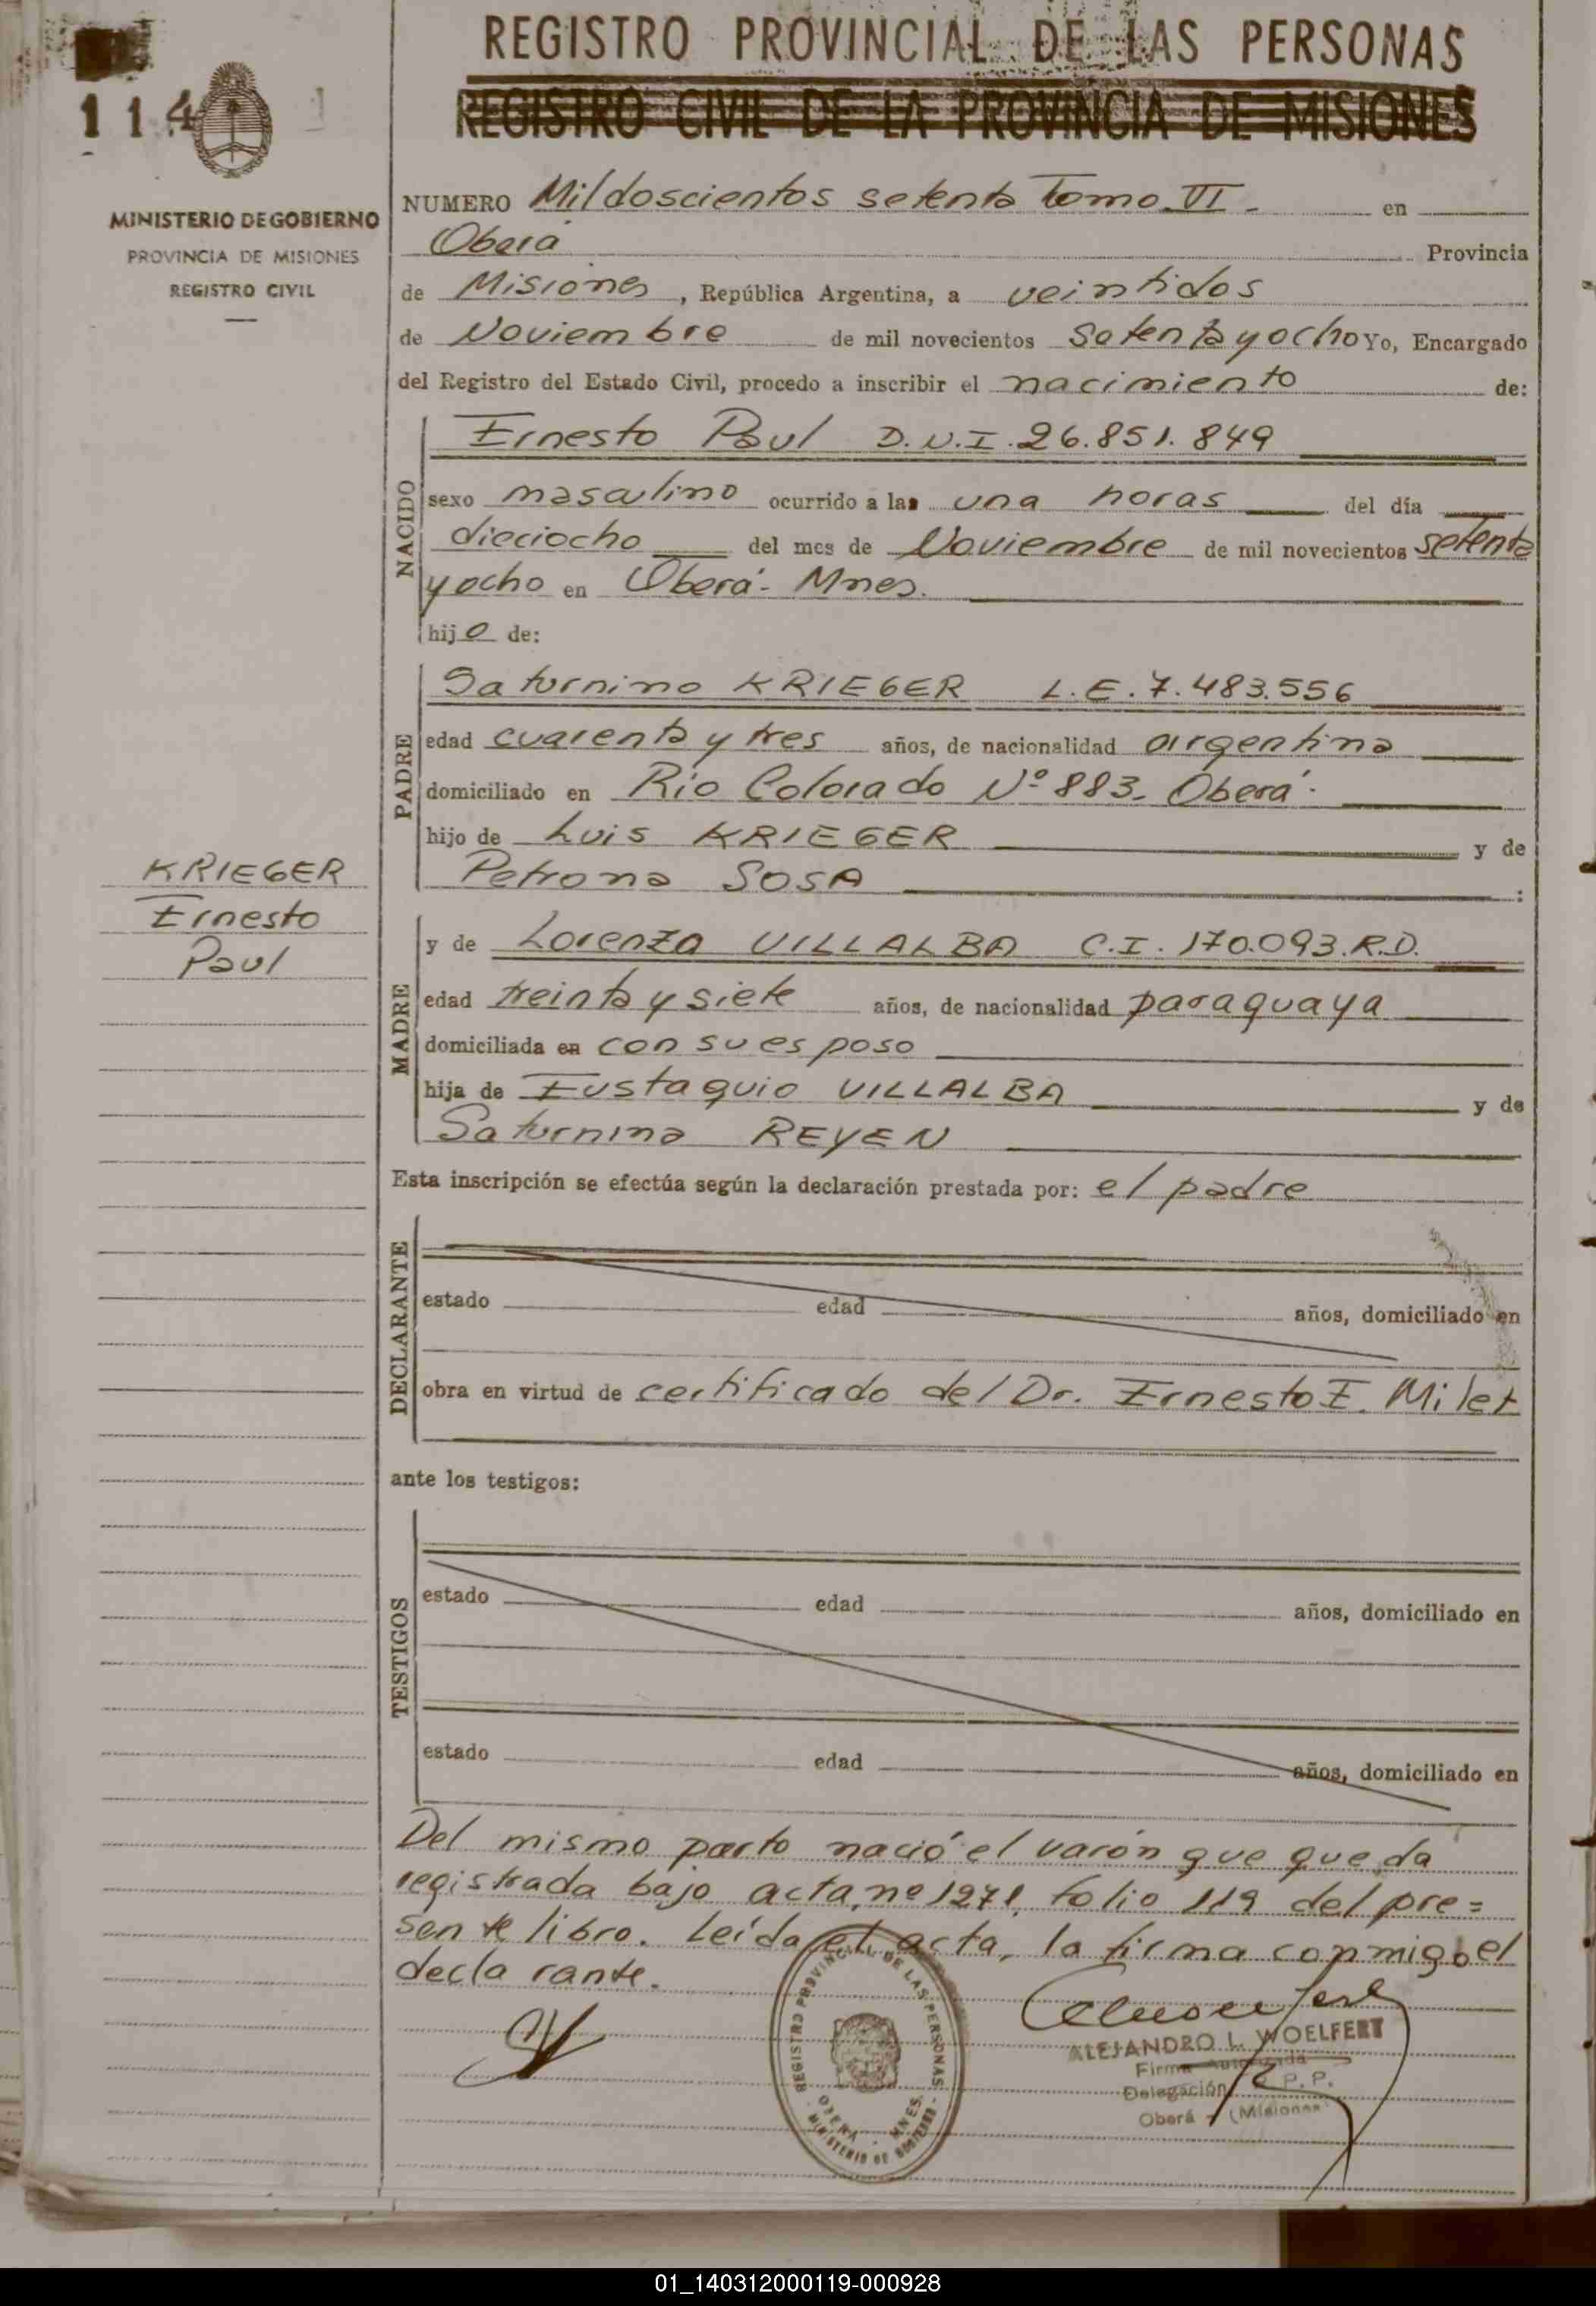 REGISTRO PROVINCIAL DE LAS PERSONAS
REGISTRO CIVIL DE LA PROVINCIA DE MISIONES
114
MINISTERIO DE GOBIERNO
PROVINCIA DE MISIONES
REGISTRO CIVIL
NUMERO Mildoscientos setenta Tomo VI - en
Oberá Provincia
de Misiones, República Argentina, a veintidos
de Noviembre de mil novecientos setenta y ocho Yo, Encargado
del Registro del Estado Civil, procedo a inscribir el nacimiento de:
NACIDO
Ernesto Paul D.N.I. 26.851.849
sexo masculino ocurrido a las una horas del día
dieciocho del mes de Noviembre de mil novecientos setenta
y ocho en Oberá - Mnes.
hijo de:
PADRE
Saturnino KRIEGER L.E. 7.483.556
edad cuarenta y tres años, de nacionalidad argentina
domiciliado en Río Colorado Nº 883 - Oberá.
hijo de Luis KRIEGER y de
Petrona SOSA :
KRIEGER
Ernesto
Paul
MADRE
y de Lorenza VILLALBA C.I. 170.093.R.D.
edad treinta y siete años, de nacionalidad paraguaya
domiciliada en con su esposo
hija de Eustaquio VILLALBA y de
Saturnina REYEN
Esta inscripción se efectúa según la declaración prestada por: el padre
DECLARANTE
estado edad años, domiciliado en
obra en virtud de certificado del Dr. Ernesto E. Milet
ante los testigos:
TESTIGOS
estado edad años, domiciliado en
estado edad años, domiciliado en
Del mismo parto nació el varón que queda
registrada bajo acta, nº 1271, folio 119 del pre=
sente libro. Leída el acta, la firma conmigo el
declarante.
REGISTRO PROVINCIAL DE LAS PERSONAS
OBERA - MNES.
MINISTERIO DE GOBIERNO
ALEJANDRO L. WOELFERT
Firma Autorizada
Delegación R. P. P.
Oberá - (Misiones)
01_140312000119-000928